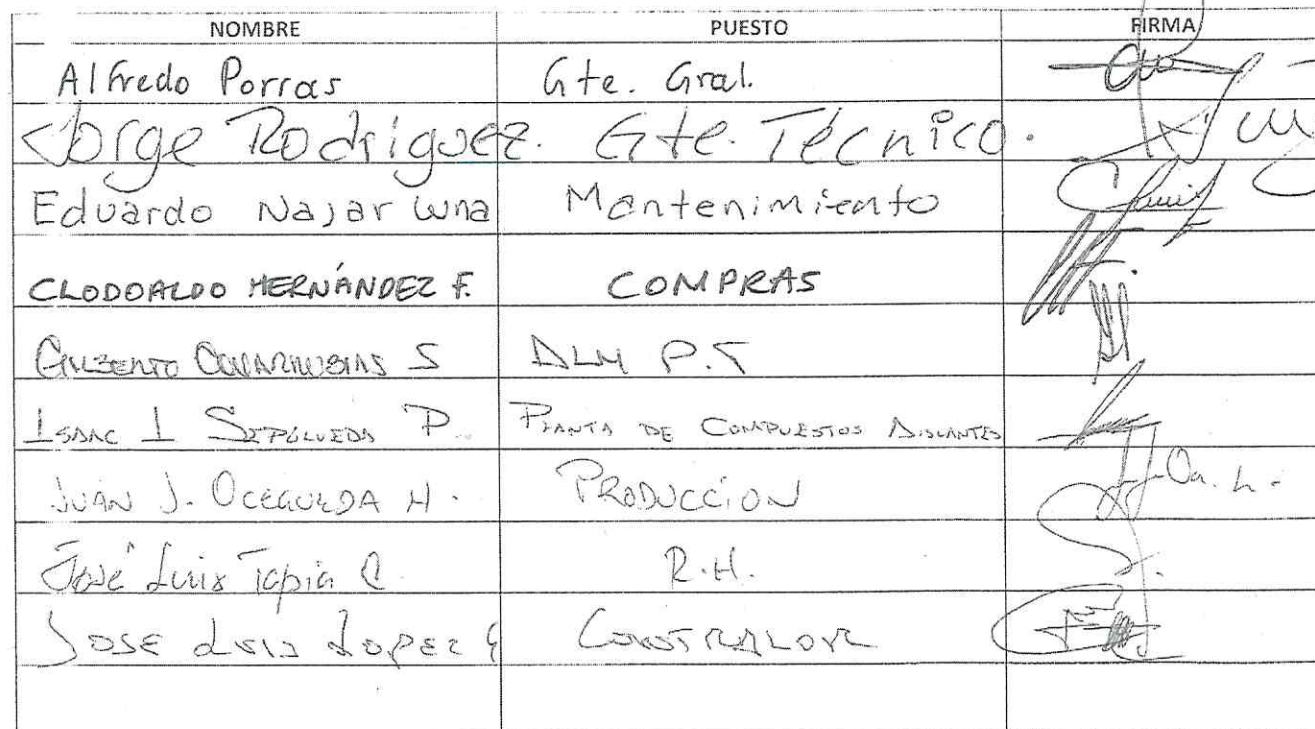 NOMBRE PUESTO FIRMA
Alfredo Porras Gte. Gral.
Jorge Rodriguez. Gte. Técnico.
Eduardo Najar Luna Mantenimiento
CLODOALDO HERNÁNDEZ F. COMPRAS
GILBERTO COVARRUBIAS S ALM P.T
ISAAC I SEPÚLVEDA P. PLANTA DE COMPUESTOS AISLANTES
JUAN J. OCEGUEDA H. PRODUCCIÓN
José Luis Tapia C. R.H.
JOSE LUIS LOPEZ CONTRALOR